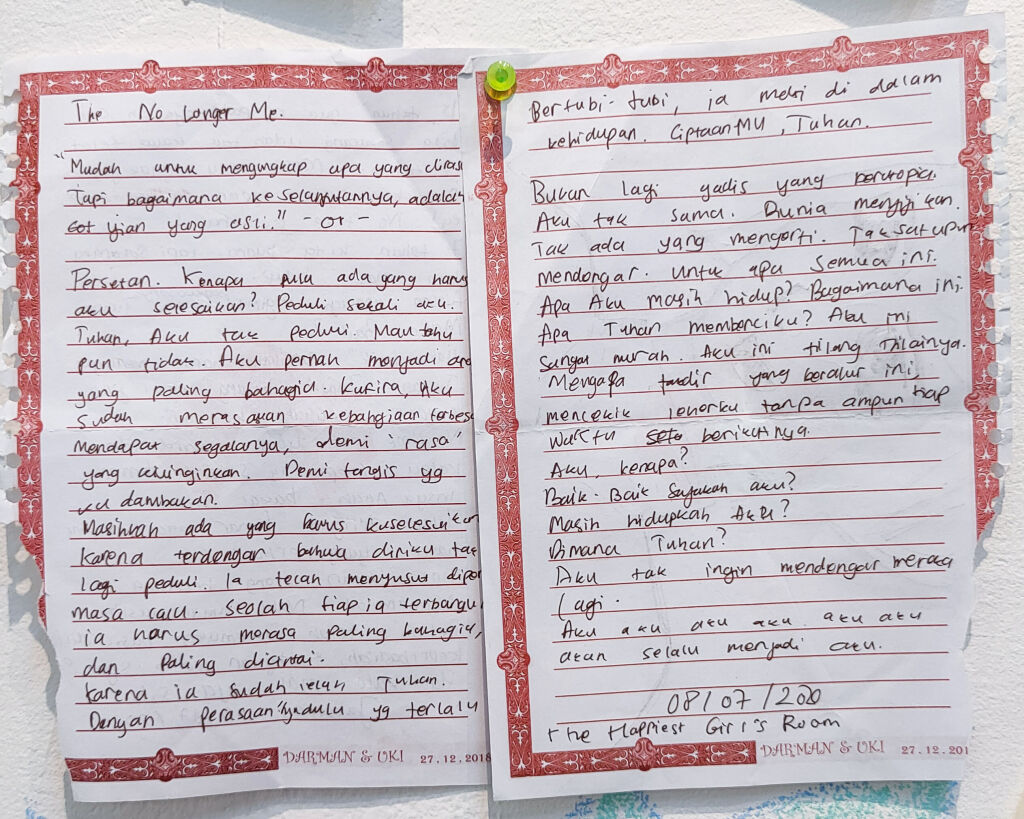 The No Longer Me.
"Mudah untuk mengungkap apa yang diras
Tapi bagaimana keselanjutannya, adalah
yang asli." - or -
Persetan. Kenapa pula ada yang harus
aku selesaikan? Peduli sekali aku.
Tuhan, Aku tak peduli. Mau tahu
pun tidak. Aku pernah menjadi
yang paling bahagia. Kufira, Aku
sudah merasakan kebahgiaan terbesa
Mendapat segalanya, demi 'rasa'
yang kuinginkan. Demi tangis yg
ku dambakan.
Masihkah ada yang harus kuselesaikan
Karena terdengar bahwa diriku tak
lagi peduli. Ia telah menyusut
masa lalu. Seolah tiap ia terbangu
ia harus merasa paling bahagia,
dan paling dicintai.
Karena ia sudah lelah Tuhan.
Dengan perasaan dulu yg terlalu
DARMAN & UKI 27.12.2018
Bertubi-tubi, ia mati di dalam
kehidupan. CiptaanMU, Tuhan.
Bukan lagi gadis yang berutopia.
Aku tak sama. Dunia menjijikan.
Tak ada yang mengerti. Tak satupun
mendengar. Untuk apa semua ini.
Apa Aku masih hidup? Bagaimana ini.
Apa Tuhan membenciku? Aku ini
sangat murah. Aku ini hilang nilainya.
Mengapa takdir yang beralur ini,
mencekik leherku tanpa ampun tiap
waktu berikutnya.
Aku, kenapa?
Baik-Baik Sajakah aku?
Masih hidupkah Aku?
Dimana Tuhan?
Aku tak ingin mendengar mereka
lagi.
Aku aku aku aku aku aku
akan selalu menjadi aku.
08/07/200
The Happiest Girl's Room
DARMAN & UKI 27.12.201